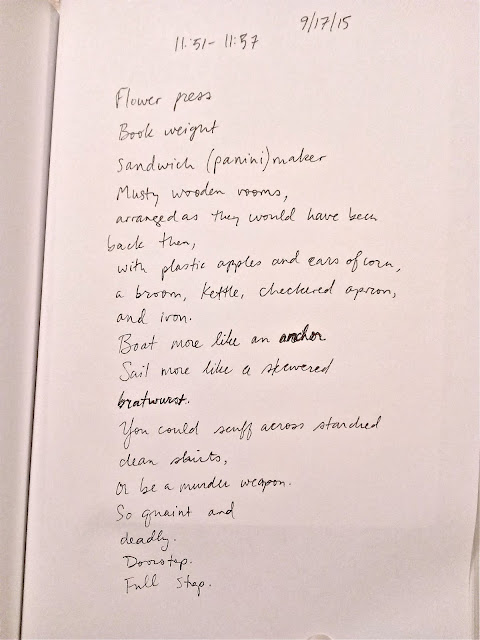 9/17/15
11:51-11:57
Flower press
Book weight
Sandwich (panini) maker
Musty wooden rooms,
arranged as they would have been
back then,
with plastic apples and ears of corn,
a broom, kettle, checkered apron,
and iron.
Boat more like an anchor
Sail more like a skewered
bratwurst.
You could scuff across starched
clean skirts,
Or be a murder weapon.
So quaint and
deadly.
Doorstop.
Full Stop.